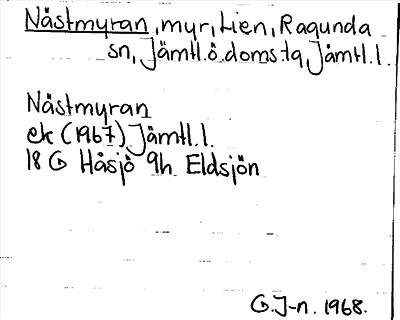 Nästmyran, myr, Lien, Ragunda
sn, Jämtl.ö.doms:tg, Jämtl.l.
Nästmyran
ek (1967) Jämtl.l.
18 G Håsjö 9h Eldsjön
G.J-n. 1968.